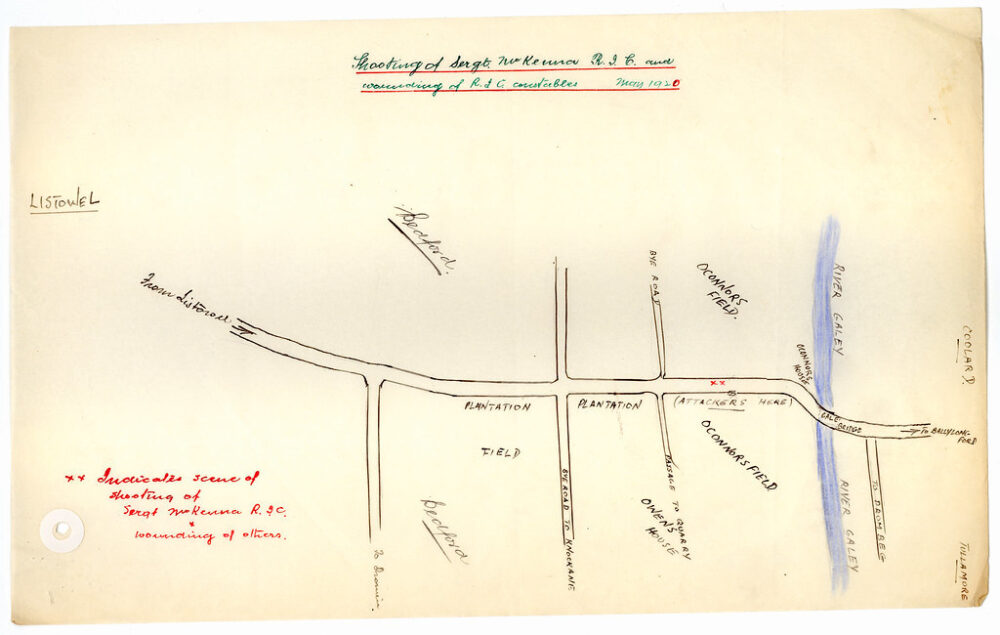 Shooting of Sergt McKenna R.I.C. and
wounding of R.I.C. constables May 1920
LISTOWEL
Bedford.
From Listowel
BYE ROAD
OCONNORS
FIELD.
RIVER GALEY
COOLARD.
OCONNORS
HOUSE
xx
PLANTATION
PLANTATION
(ATTACKERS HERE)
GALE
BRIDGE
TO BALLYLONG-
FORD
FIELD
OCONNORS FIELD
BYE ROAD TO KNOCKANE
PASSAGE TO QUARRY
OWENS
HOUSE
Bedford
RIVER GALEY
TO DROMBEG
TULLAMORE
To Dromin
xx Indicates scene of
shooting of
Sergt McKenna R.I.C.
&
wounding of others.